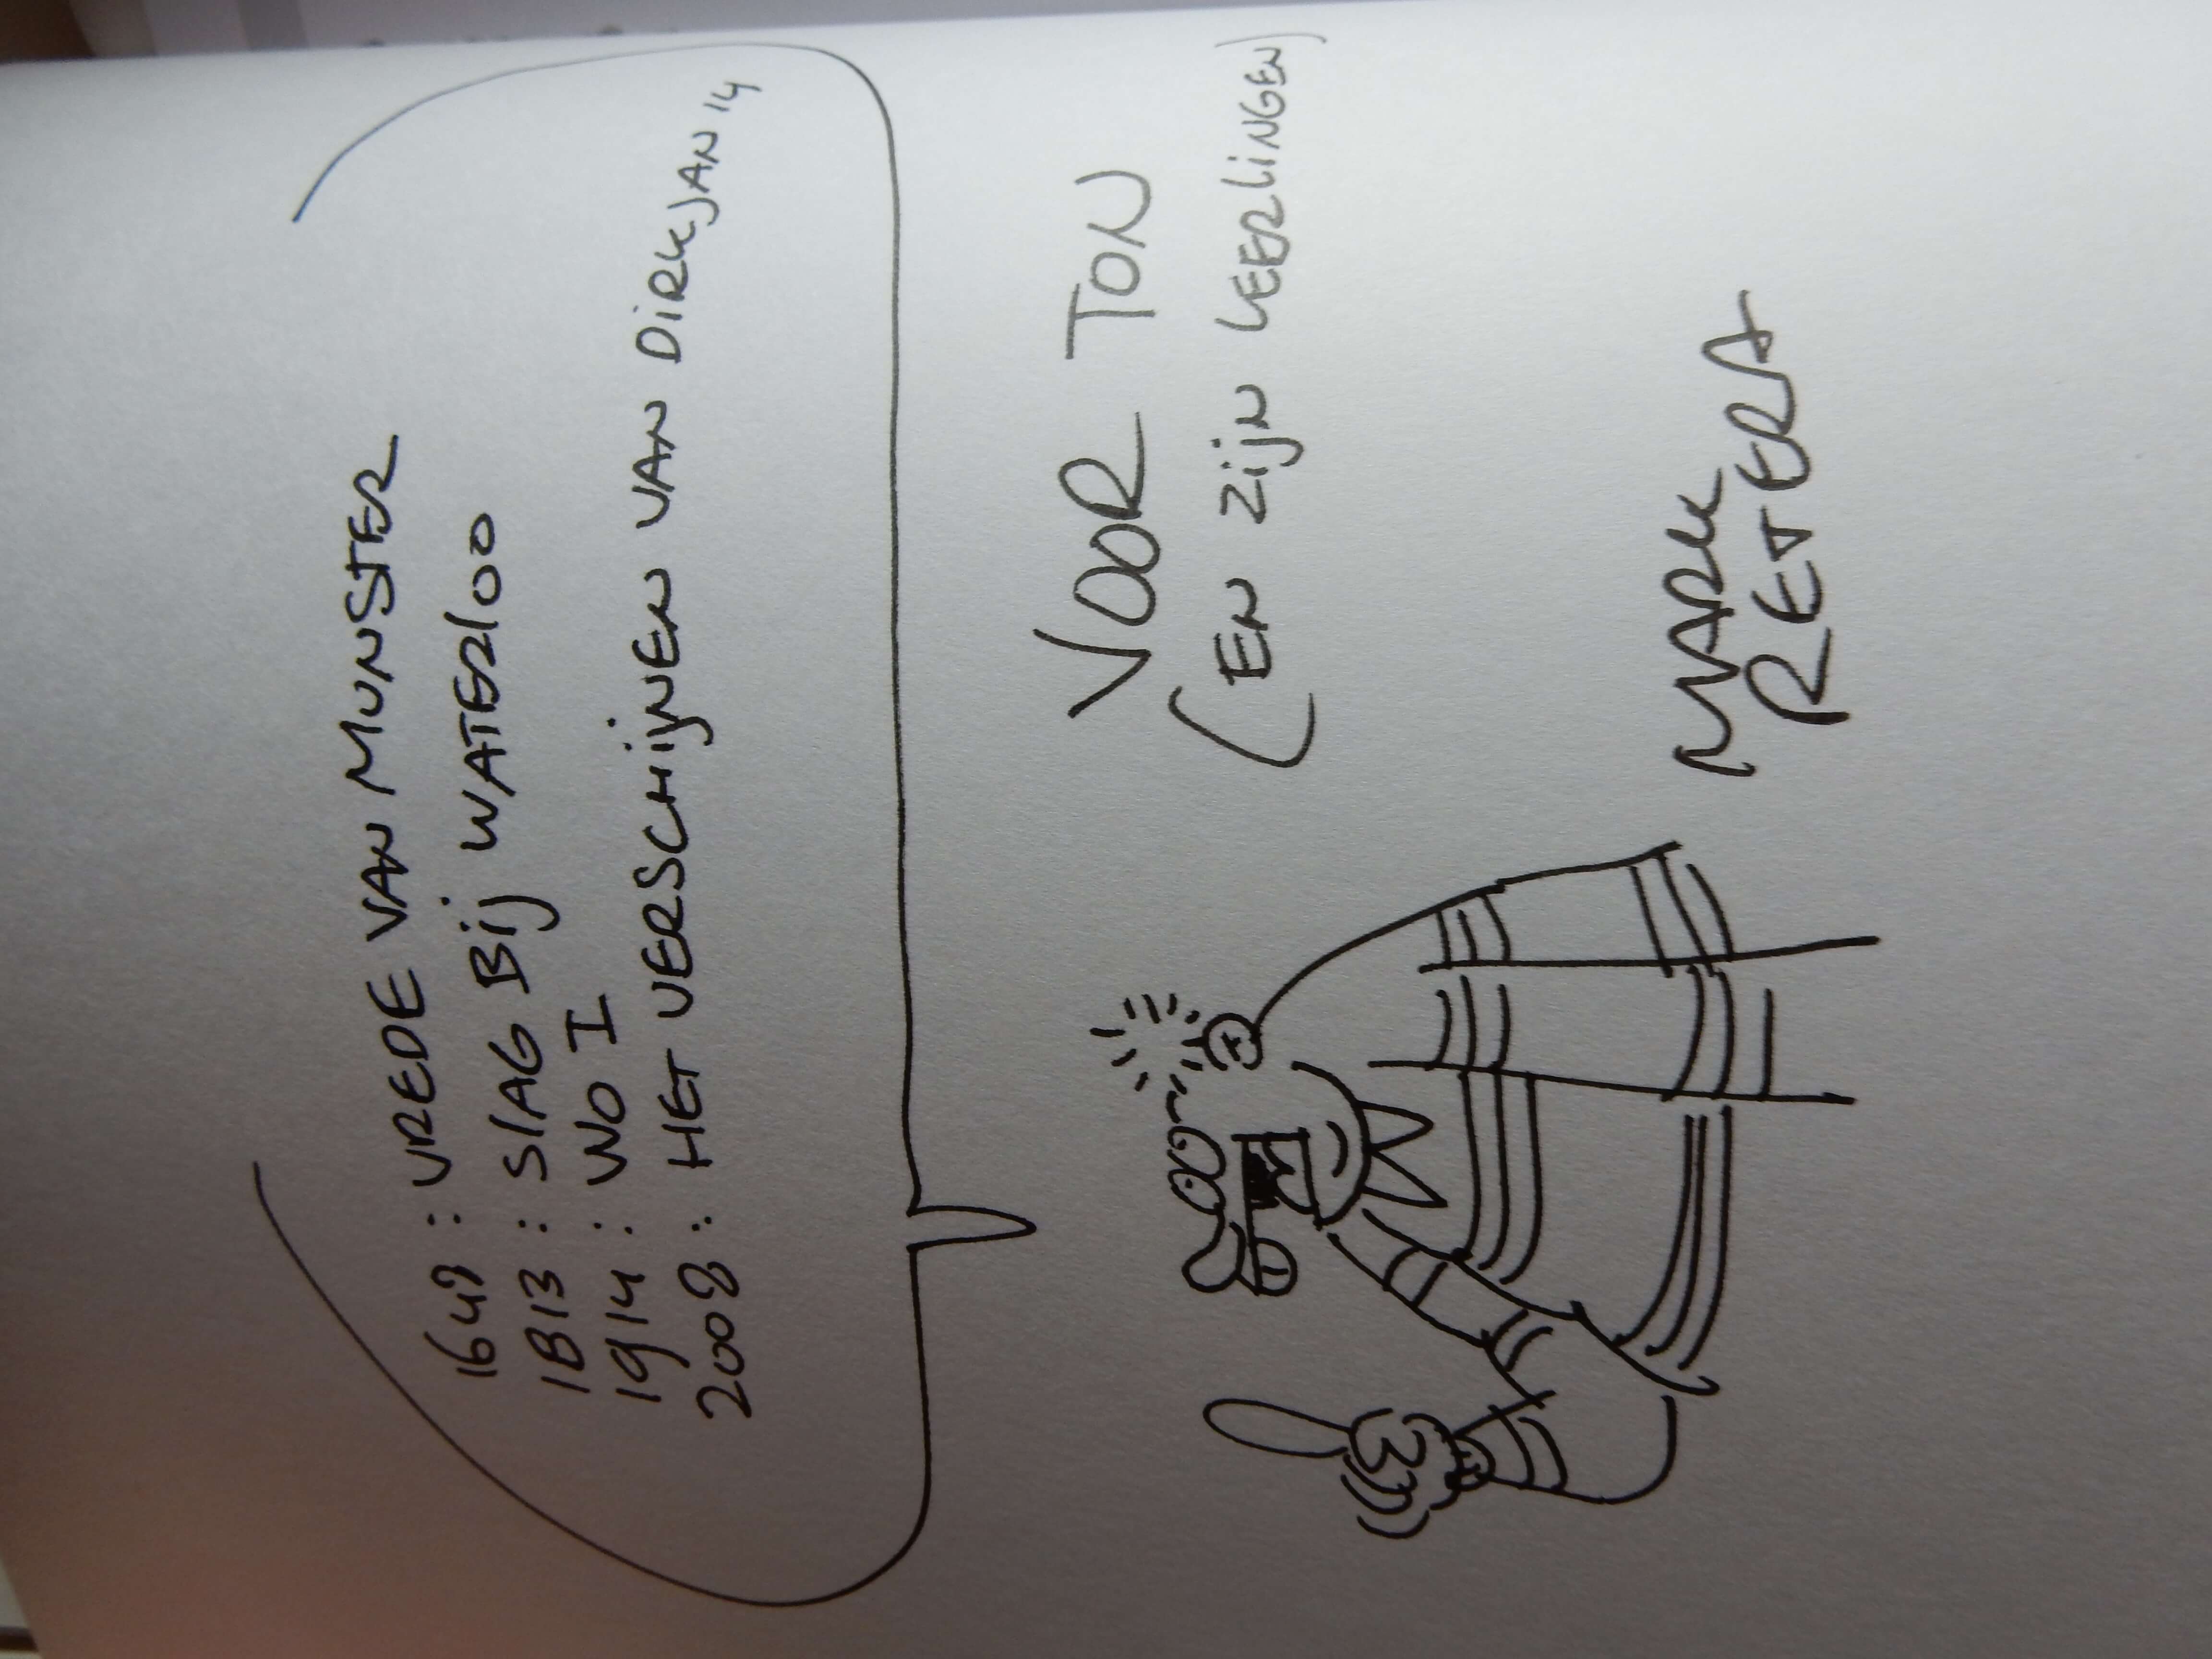 1648 : VREDE VAN MUNSTER
1813 : SLAG Bij WATERLOO
1914 : WO I
2008 : HET VERSCHIJNEN VAN DIRKJAN 14
VOOR TON
(EN ZIJN LEERLINGEN)
MARK
RETERA